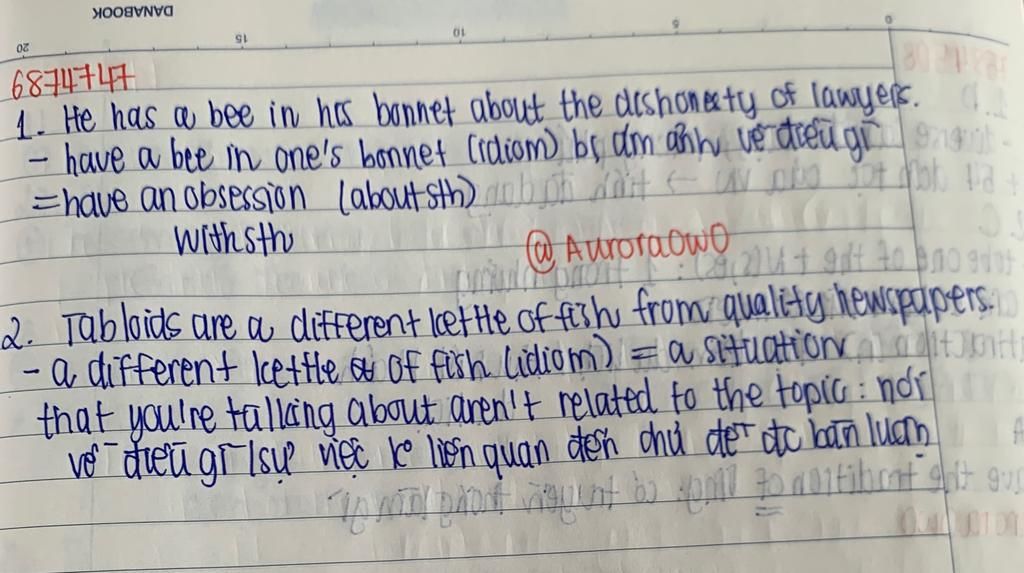 DANABOOK
20 15 10 5 0
6874747
1. He has a bee in his bonnet about the dishonesty of lawyers.
- have a bee in one's bonnet (idiom) bị ám ảnh về điều gì
= have an obsession (about sth)
with sth
@AuroraOwO
2. Tabloids are a different kettle of fish from quality newspapers.
- a different kettle of fish (idiom) = a situation
that you're talking about aren't related to the topic: nói
về điều gì / sự việc k liên quan đến chủ đề đc bàn luận